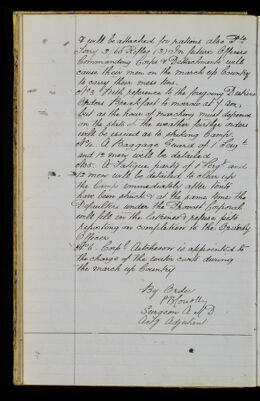 & will be attached for rations also
2/60 Rifles (3) In future Officers
Commanding Corps & Detachments will
cause their men on the march up Country
to carry their mess tins.
No 3 With reference to the foregoing
Orders Breakfast to morrow at 7 am,
but as the hour of marching must depend
on the state of the weather further orders
will be issued as to striking Camp.
No 4. A Baggage Guard of 1 Sergt
and 12 men will be detailed
No 5. A Fatigue party of 1 Sergt and
12 men will be detailed to clear up
the Camp immediately after tents
have been struck & at the same time the
Defaulters under the Provost Corporal
will fill in the latrines & refuse pits
reporting on completion to the Orderly
Officer
No 6. Capt Aitcheson is appointed to
the charge of the water carts during
the march up Country
By Order
Surgeon A M D
Actg Adjutant